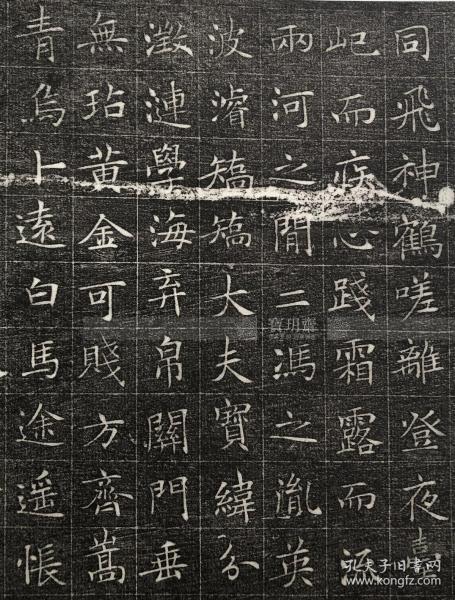 同飛神鶴嗟離登夜
屺而疚心踐霜露而
兩河之閒二馮之胤英
波濬矯矯大夫寶緯分
澂漣學海弃帛關門垂
無玷黃金可賤方齊嵩
青烏卜遠白馬途遥悵
寶玥齋
孔夫子旧书网
www.kongfz.com